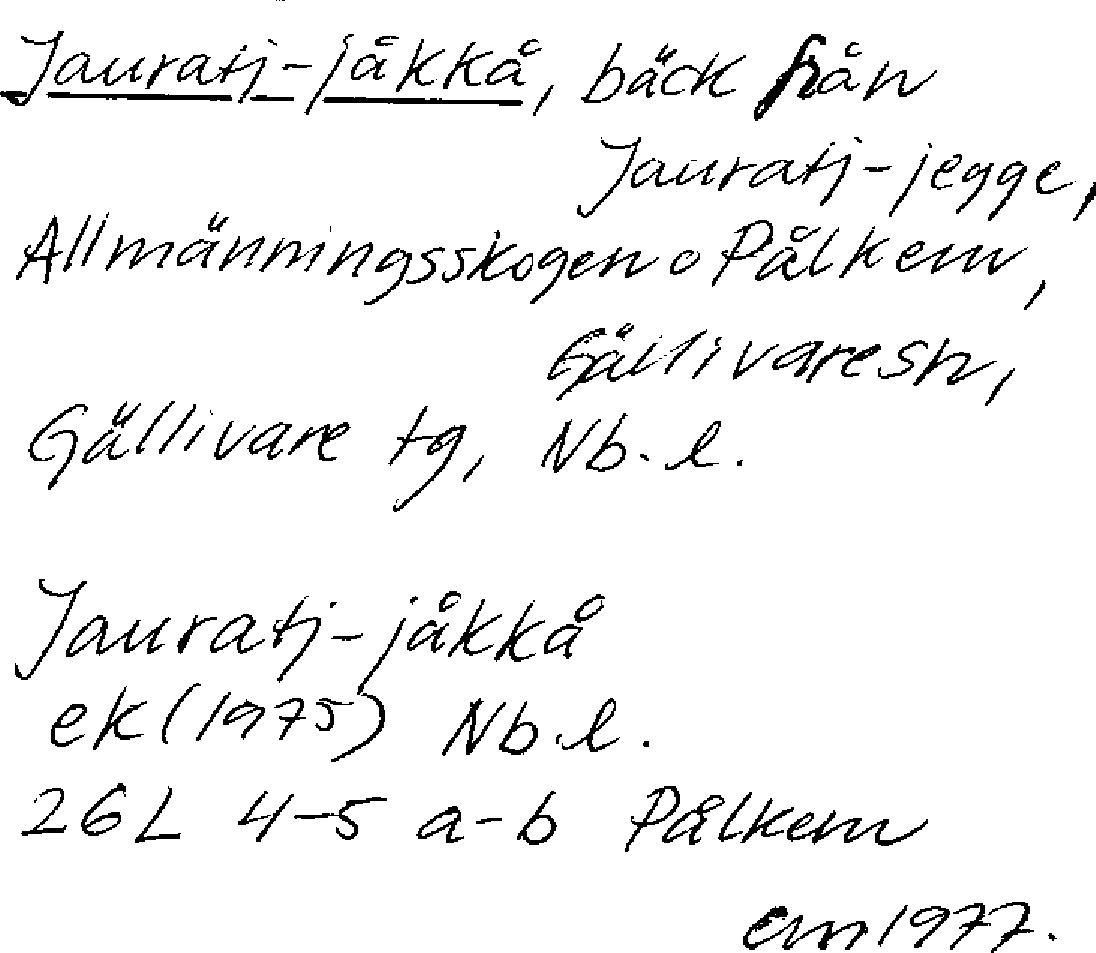 Jauratj-jåkkå, bäck från
Jauratj-jegge,
Allmänningsskogen o Pålkem,
Gällivaresn,
Gällivare tg, Nb. l.
Jauratj-jåkkå
ek (1975) Nb. l.
26L 4-5 a-b Pålkem
em 1977.